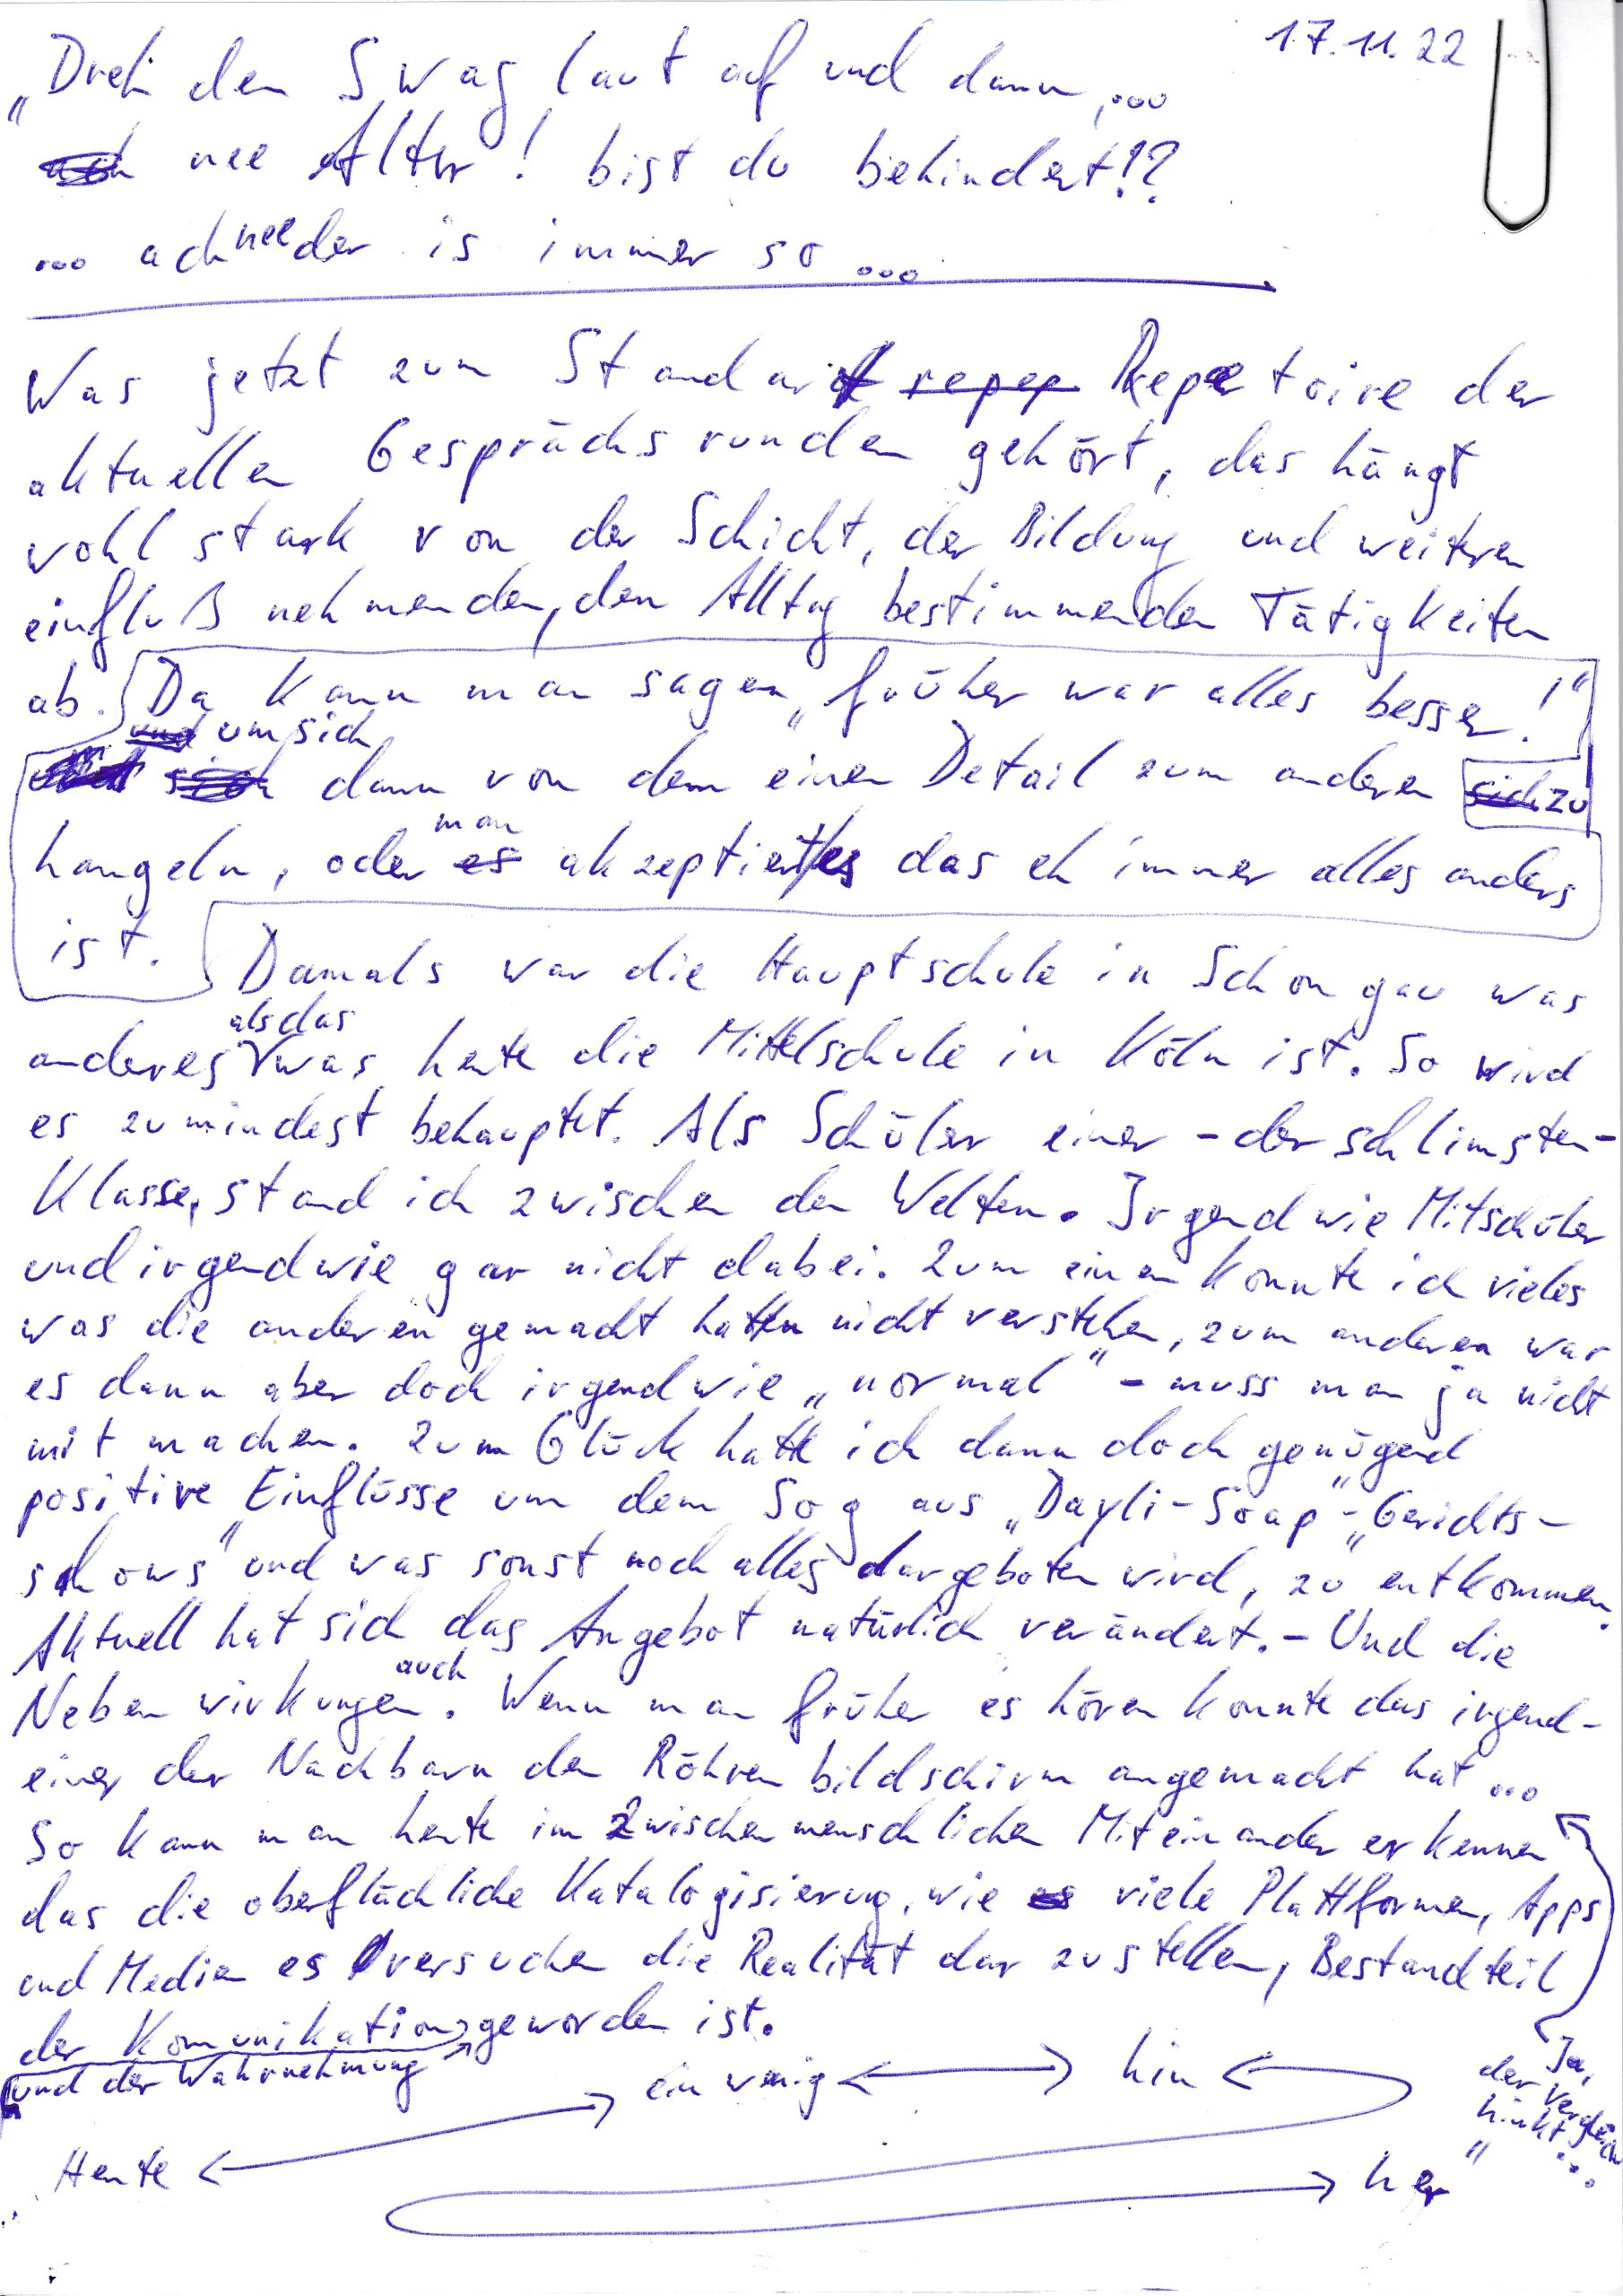 17.11.22
„Dreh den Swag laut auf und dann,...
nee Alter! bist du behindert!?
... ach nee der is immer so ...
Was jetzt zum Standart Repertoire der
aktuellen Gesprächsrunden gehört, das hängt
wohl stark von der Schicht, der Bildung und weiteren
einfluß nehmenden, den Alltag bestimmenden Tätigkeiten
ab. Da kann man sagen „früher war alles besser!"
um sich
dann von dem einen Detail zum anderen zu
man
hangeln, oder akzeptiert es das eh immer alles anders
ist. Damals war die Hauptschule in Schongau was
als das
anderes was heute die Mittelschule in Köln ist. So wird
es zumindest behauptet. Als Schüler einer - der schlimsten -
Klasse, stand ich zwischen den Welten. Irgendwie Mitschüler
und irgendwie gar nicht dabei. Zum einen konnte ich vieles
was die anderen gemacht hatten nicht verstehen, zum anderen war
es dann aber doch irgendwie „normal" - muss man ja nicht
mit machen. Zum Glück hatte ich dann doch genügend
positive Einflüsse um dem Sog aus „Dayli-Soap"-„Gerichts-
shows" und was sonst noch alles dargeboten wird, zu entkommen.
Aktuell hat sich das Angebot natürlich verändert. - Und die
auch
Nebenwirkungen. Wenn man früher es hören konnte das irgend-
einer der Nachbarn den Röhrenbildschirm angemacht hat ...
So kann man heute im Zwischenmenschlichen Miteinander erkennen
das die oberflächliche Katalogisierung, wie viele Plattformen, Apps
und Medien es versuchen die Realität dar zu stellen, Bestandteil
der Komunikation geworden ist.
und der Wahrnehmung
Ja,
der Vergleich
hinkt ...
"
ein wenig hin
Heute her